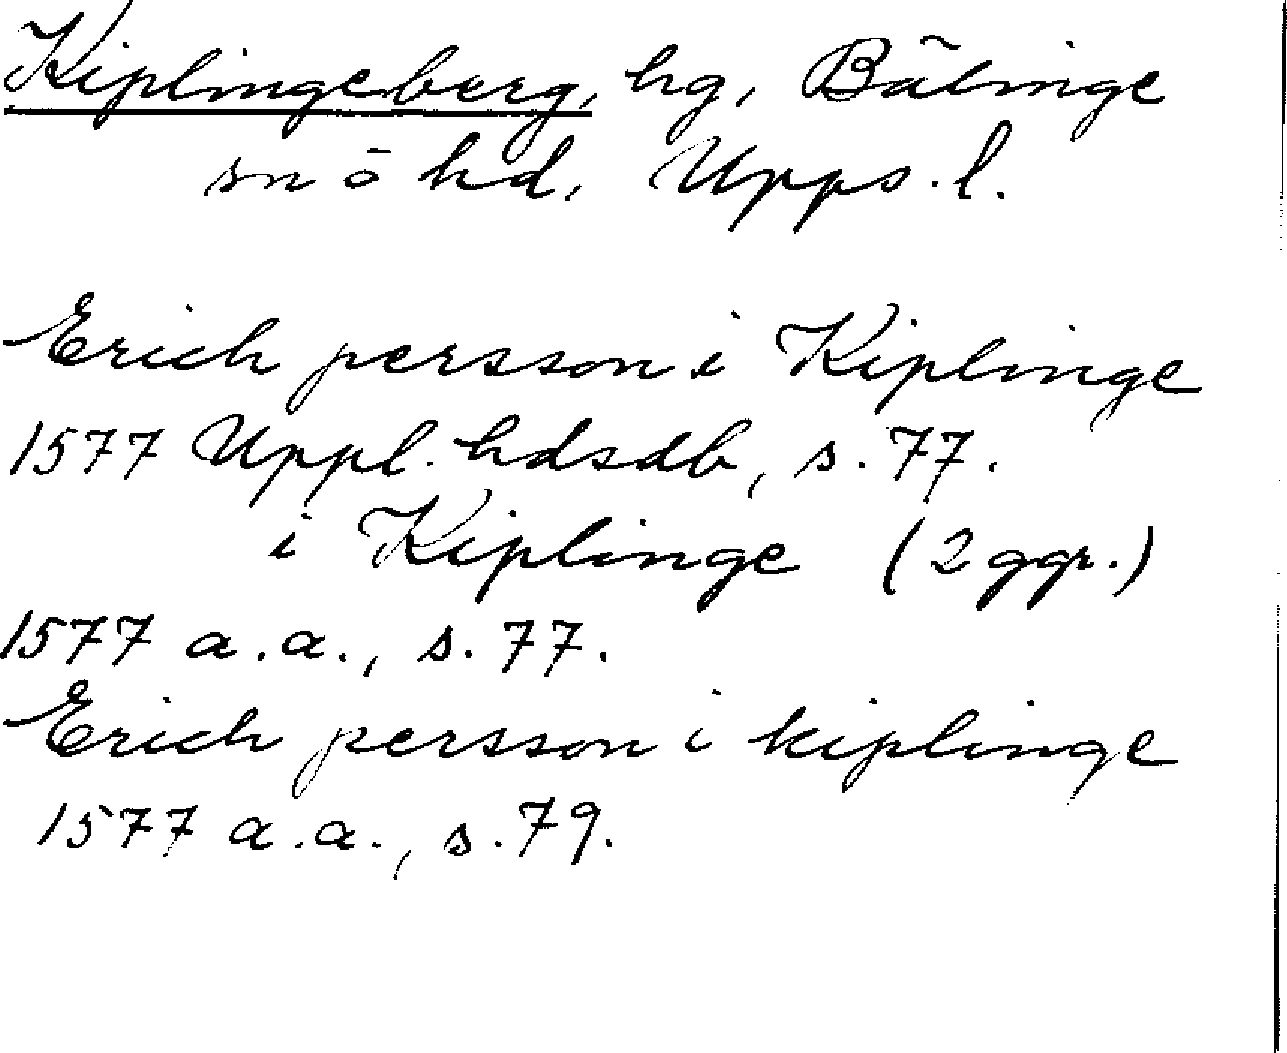 Kiplingeberg, hg, Bälinge
sn ō hd, Upps. l.
Erich persson i Kiplinge
1577 Uppl. hdsdb, s. 77.
i Kiplinge (2 ggr.)
1577 a.a., s. 77.
Erich persson i kiplinge
1577 a.a., s. 79.